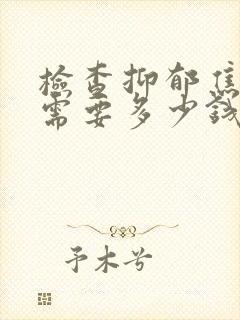 檢查抑郁焦
需要多少錢
予木兮